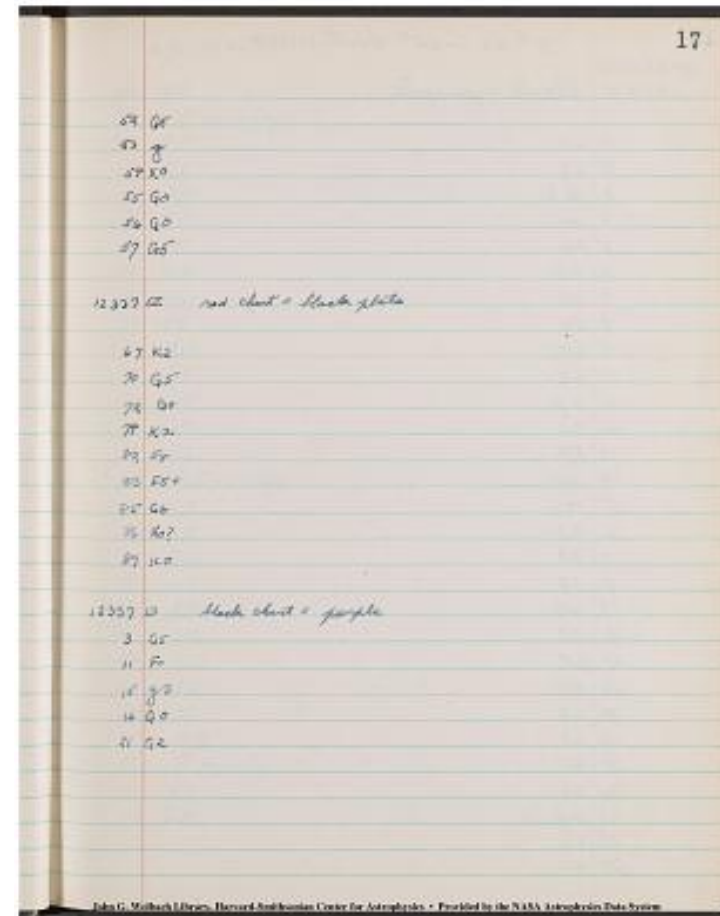 17
G5
g
K0
55 G0
56 G0
57 G5
12337 red chart = black plate
67 K2
70 G5
78
K2
82
83 F5+
85 G0
K0?
87 K0
12337 black chart = purple
3 G5
11 F0
15 g5
16 G0
21 G2
John G. Wolbach Library, Harvard-Smithsonian Center for Astrophysics • Provided by the NASA Astrophysics Data System